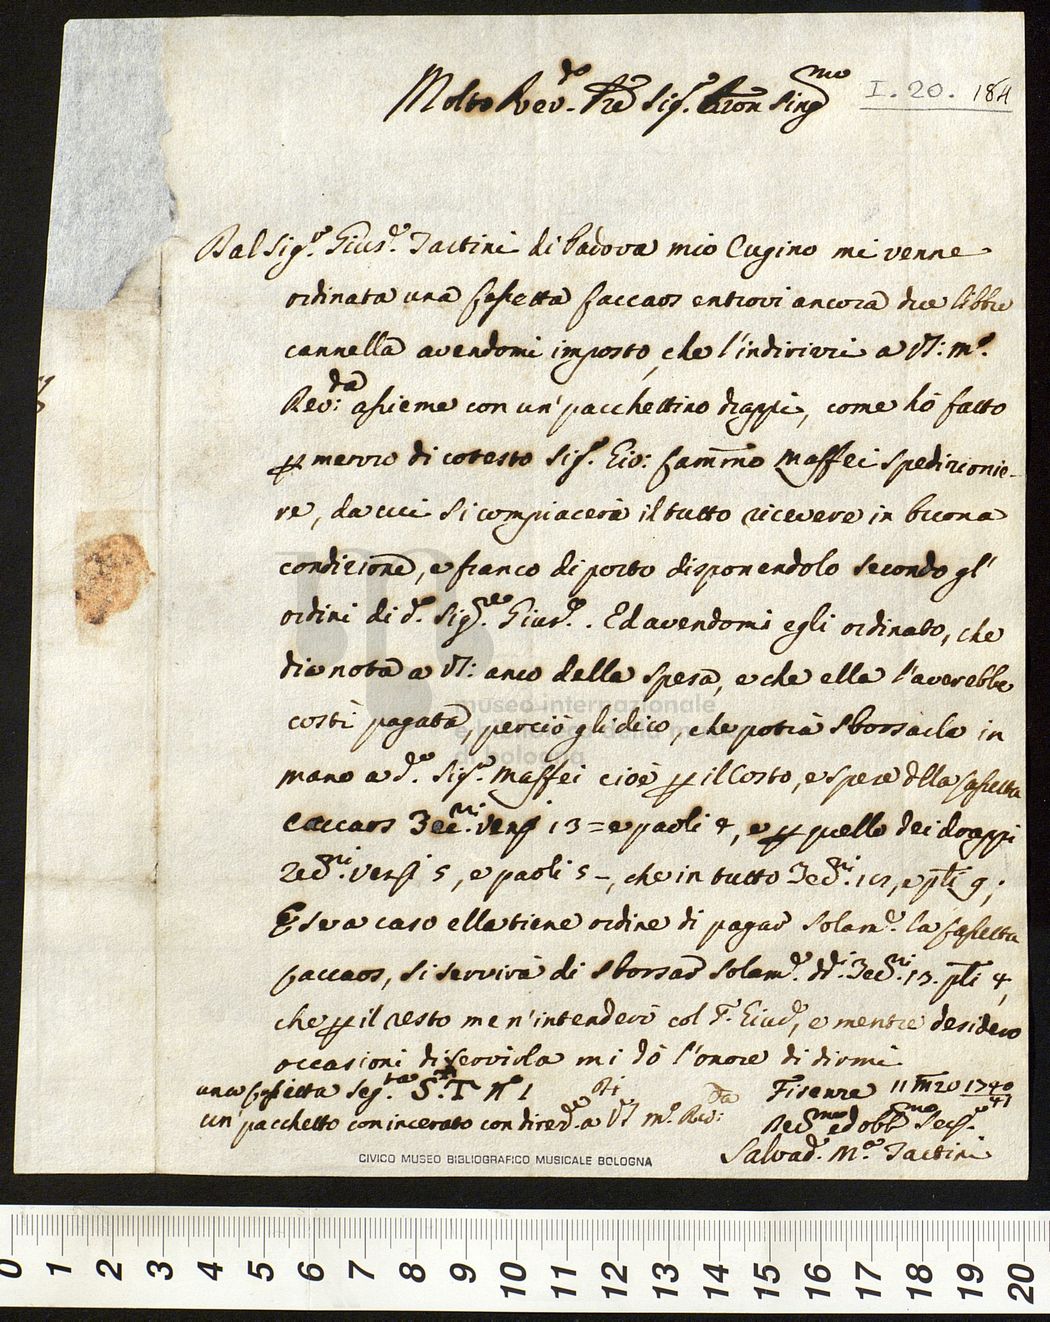 Molto Rev.do Pre Sig.r Pron Sing.mo
I. 20. 184
Dal Sig.r Gius.e Tartini di Padova mio Cugino mi venne
ordinata una cassetta caccaos entrovi ancora due libbre
cannella avendomi imposto, che l'indirizzi a V.S: m.o
Rev:da assieme con un' pacchettino drappi, come hò fatto
p mezzo di cotesto Sig.r Gio: Maffei spedizionie-
re, da cui si compiacerà il tutto ricevere in buona
condizione, e franco di porto disponendolo secondo gl'
ordini di d.o Sig.re Gius.e. Ed avendomi egli ordinato, che
dia nota a V.S: anco della spesa, e che ella l'averebbe
costì pagata, perciò gli dico, che potrà sborsarla in
mano a d.o Sig.r Maffei cioè p il Costo, e spese dlla cassetta
Caccaos Zec.ni 13 = e paoli 4, e p quello dei drappi
Zec.ni 5, e paoli 5 -, che in tutto Zec.ni e pli 9;
E se a caso ella tiene ordine di pagar solam.e la cassetta
caccaos, si servirà di sborsar solam.e dd.i Zec.ni 13. pli 4,
che p il resto me n'intenderò col S.r Gius.e, e mentre desidero
occasioni di servirla mi dò l'onore di dirmi
una cassetta seg.ta S.T n.o 1
un' pacchetto con incerato con direz.e a V.S. m.o Rev:da
Firenze 11 Mzo 1740/41
ed obb.mo Ser.re
Salvad.e M.a Tartini
CIVICO MUSEO BIBLIOGRAFICO MUSICALE BOLOGNA
museo internazionale
e biblioteca della musica
di bologna
0 1 2 3 4 5 6 7 8 9 10 11 12 13 14 15 16 17 18 19 20